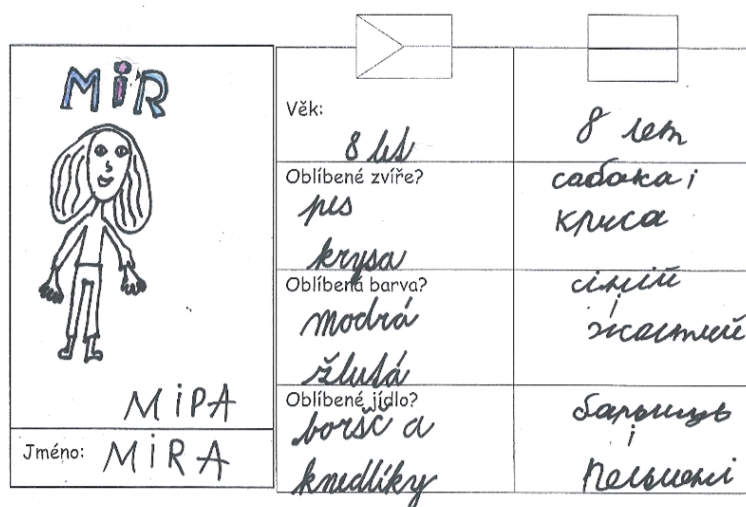 MiR
MiPA
Jméno: MiRA
Věk:
8 let
8 лет
Oblíbené zvíře?
pes
krysa
сабака і
криса
Oblíbená barva?
modrá
žlutá
сіній
і
жолтий
Oblíbené jídlo?
boršč a
knedlíky
і
пельмені